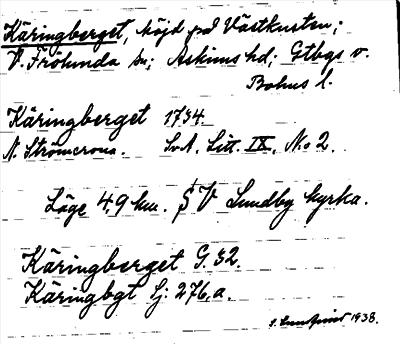 Käringberget, höjd på Västkusten;
V. Frölunda sn; Askims hd; Gtbgs o.
Bohus l.
Käringberget 1734.
N. Strömcrona. SvA. Litt. IX, No 2.
Läge 4,9 km. SV Lundby kyrka.
Käringberget G. 32.
Käringbgt Lj: 276, a.
1938.